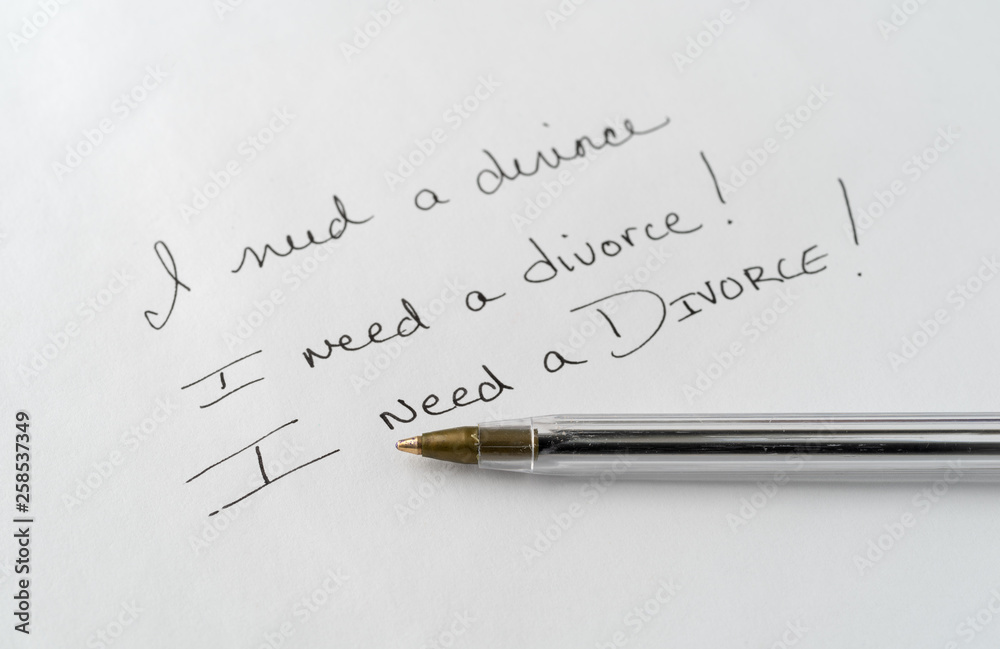 I need a divorce
I need a divorce!
I need a DIVORCE!
Adobe Stock | #258537349